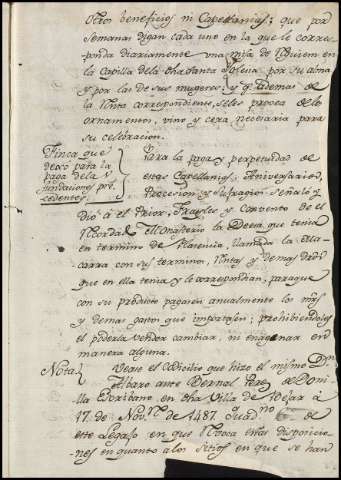 otros beneficios ni Capellanias; que por
semanas digan cada uno en la que le corres-
ponda diariamente una misa de Requiem en
la Capilla dela dha Santa Iglesia por su alma
y por las de sus mugeres; y q.e ademas de
la Renta correspondiente, seles provea delos
ornamentos, vino y cera necesaria para
su celebracion.
Finca que
dexó para la
paga de las
fundaciones pre-
cedentes.
Para la paga y perpetuidad de
estas Capellanias, Aniversarios,
Procesion y sufragios señaló y
dió á el Prior, Frayles y Convento de el
Monasterio la Deesa que tenia
en termino de Plasencia, llamada la
carra con sus termino, Rentas y demas
que en ella tenia y le correspondian, paraque
con su producto pagasen anualmente los mrs
y demas gastos que importasen; prohibiendoles
el poderla vender cambiar, ni enagenar en
manera alguna.
Nota
Vease el Codicilio que hizo el mismo Dn
Alvaro ante Bernal Perez de Boni-
lla Escribano en dha Villa de Bejar á
17. de Nov.re de 1487. Quad.no de
este Legajo en que Revoca estas disposicio-
nes en quanto alos sitios en que se han